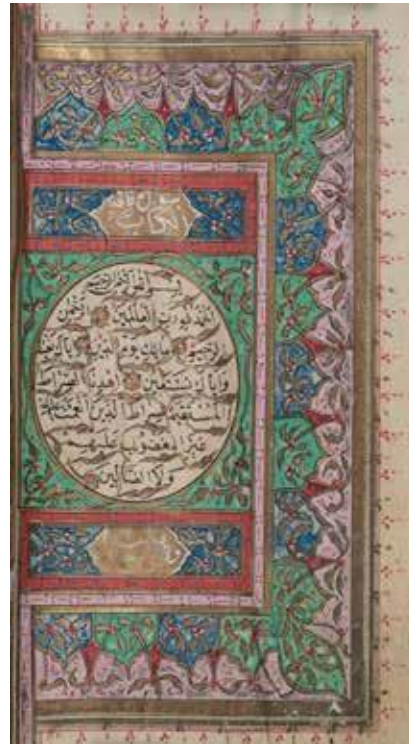 سورة فاتحة
الكتاب
بسم الله الرحمن الرحيم
الحمد لله رب العالمين الرحمن
الرحيم مالك يوم الدين اياك نعبد
واياك نستعين اهدنا الصراط
المستقيم صراط الذين انعمت عليهم
غير المغضوب عليهم
ولا الضالين